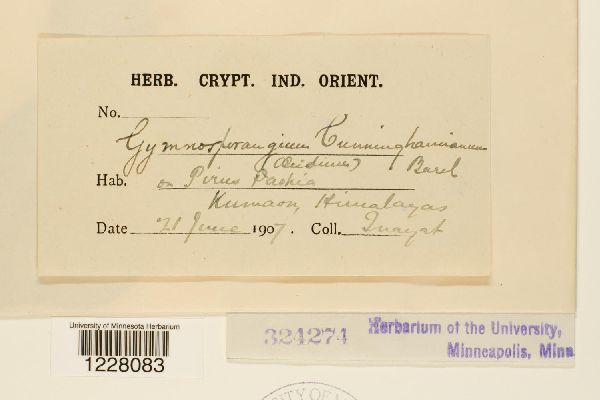 HERB. CRYPT. IND. ORIENT.
No.
Gymnosporangium Cunninghamianum
(Aecidium) Barcl
Hab. on Pirus Pashia
Kumaon, Himalayas
Date 21 June 1907. Coll. Inayat
University of Minnesota Herbarium
1228083
324274 Herbarium of the University,
Minneapolis, Minn